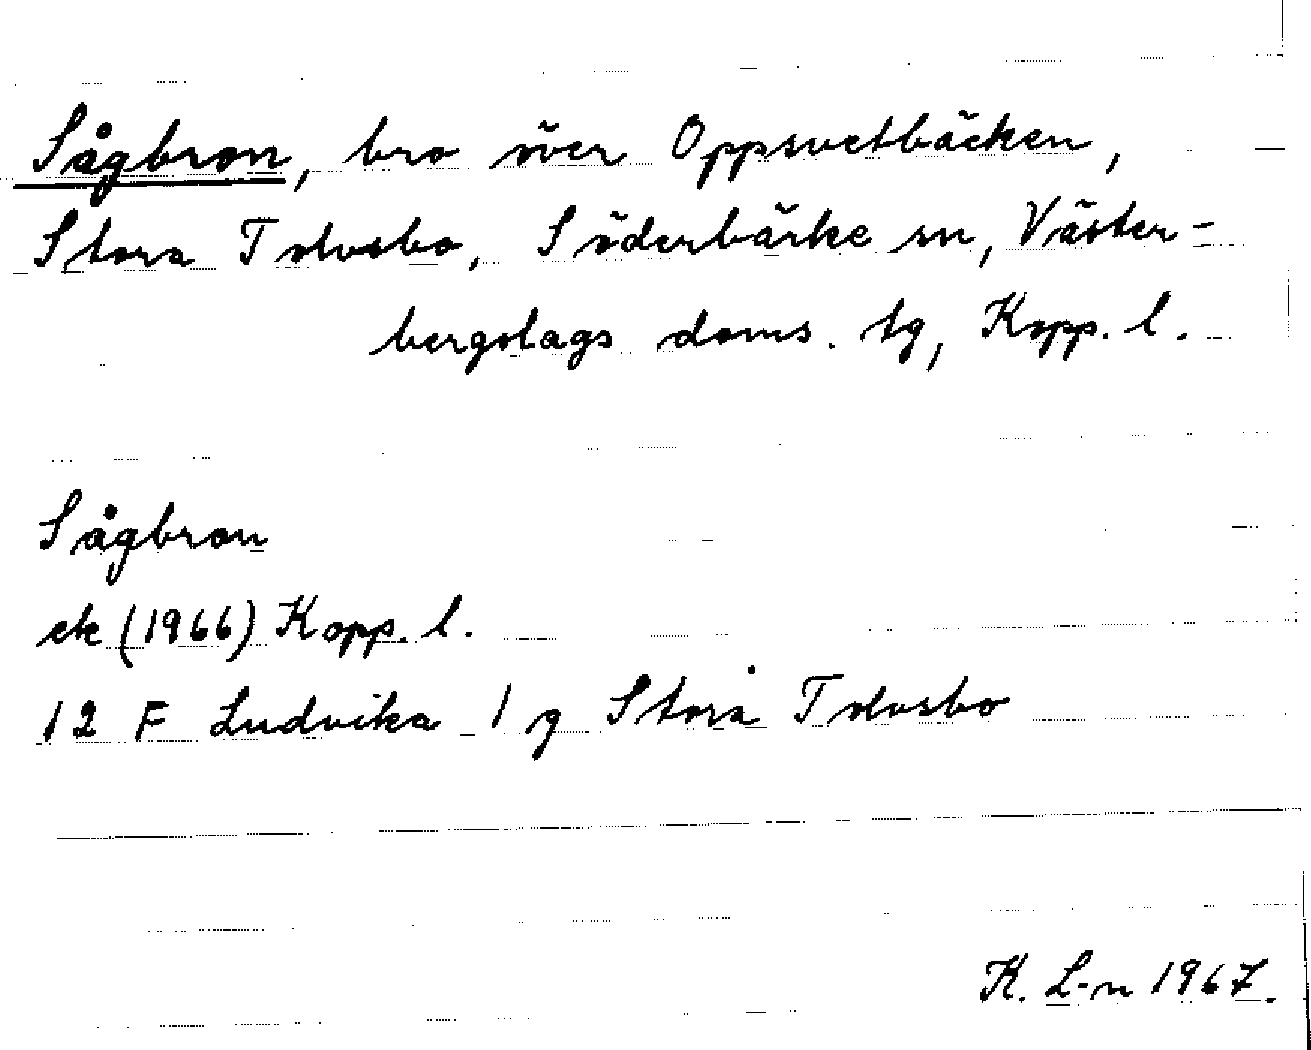 Sågbron, bro över Oppsvetbäcken,
Stora Tolvsbo, Söderbärke sn, Väster-
bergslags doms. tg, Kopp. l.
Sågbron
ek (1966) Kopp. l.
12 F Ludvika 1 g Stora Tolvsbo
K. L-n 1967.